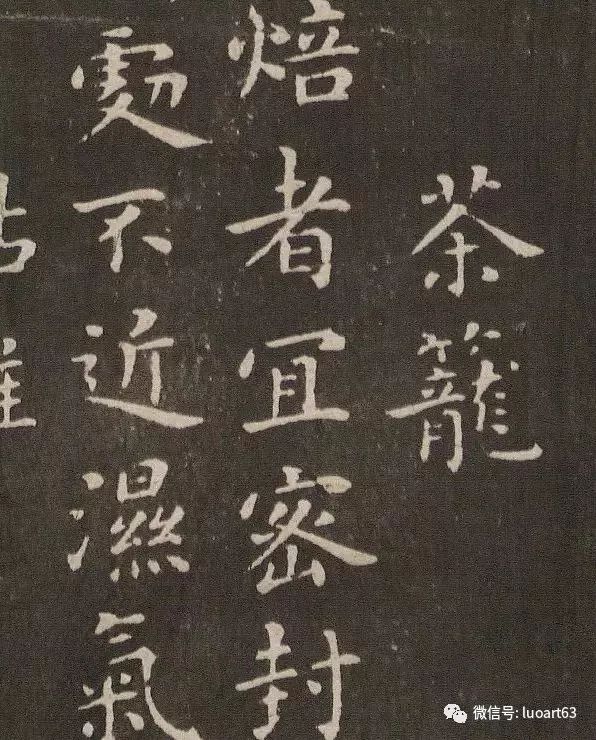 茶籠
焙者宜密封
處不近濕氣
微信号: luoart63